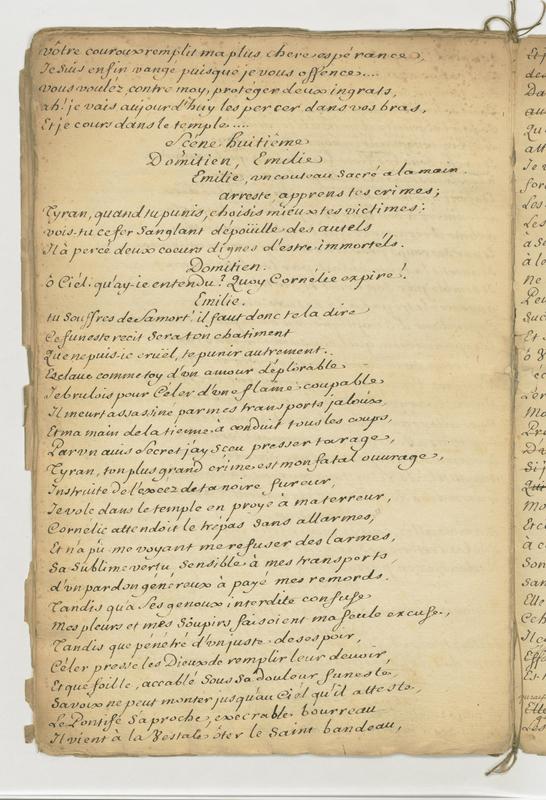 vôtre couroux remplit ma plus chere espérance,
Je suis enfin vangé puisque je vous offence....
vous voulez contre moy, protéger deux ingrats,
ah! je vais aujourd'huy les percer dans vos bras,
Et je cours dans le temple....
Scéne huitiême
Domitien, Emilie
Emilie, un couteau Sacré a la main.
arreste, apprens tes crimes;
Tyran, quand tu punis, choisis mieux tes victimes:
vois-tu ce fer Sanglant dépoüille des autels
Il à percé deux coeurs dignes d'estre immortéls.
Domitien.
ô Ciél: qu'ay-ie entendu? Quoy Cornélie expire!
Emilie.
tu Souffres de Sa mort! il faut donc te la dire
Ce funeste recit Sera ton chatiment
Que ne puis-ie cruél, te punir autrement..
Esclave comme toy d'vn amour déplorable
Je brulois pour Céler d'vne flâme coupable
Il meurt assassiné par mes transports jaloux,
Et ma main de la tienne à conduit tous les coups,
Par vn avis Secret jay Sceu presser ta rage,
Tyran, ton plus grand crime est mon fatal ouvrage,
Instruite de l'excez de ta noire fureur,
Je vole dans le temple en proye à ma terreur,
Cornélie attendoit le trépas Sans allarmes,
Et n'a pû me voyant me refuser des larmes,
Sa Sublime vertu Sensible à mes transports
d'vn pardon généreux à payé mes remords.
Tandis qu'a Ses genoux interdite confuse
Mes pleurs et mes Soupirs faisoient ma Seule excuse,
Tandis que pénétré d'vn juste desespoir,
Céler presse les Dieux de remplir leur devoir,
Et que foille, accablé Sous Sa douleur funeste
Sa voix ne peut monter jusqu'au Ciél qu'il atteste,
Le Pontife S'aproche, execrable bourreau
Il vient à la Vestale ôter le Saint bandeau,